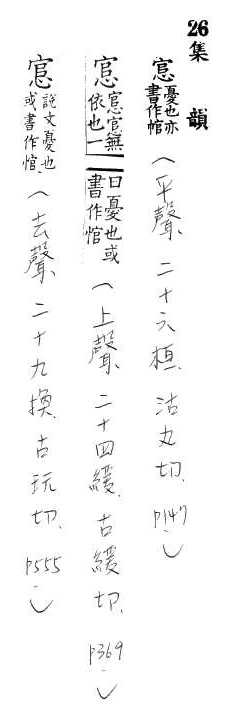 26集韻
悹憂也亦書作悺(平聲、二十六桓、沽丸切、p147.)
悹悹悹無依也一曰憂也或書作悺(上聲、二十四緩、古緩切、p369.)
悹說文憂也或書作悺(去聲、二十九換、古玩切、p555.)